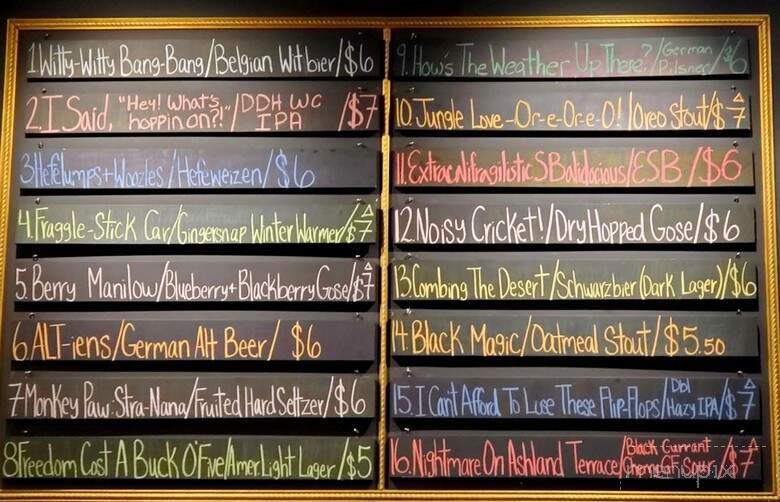 1 Witty-Witty Bang-Bang/Belgian Witbier/$6
2. I Said, "Hey! What's hoppin on?!"/DDH WC IPA /$7
3 Hefelumps + Woozles /Hefeweizen/ $6
4. Fraggle-Stick Car/Gingersnap Winter Warmer/$7
5. Berry Manilow/Blueberry + Blackberry Gose/$7
6 ALT-iens/German Alt Beer/ $6
7 Monkey Paw: Stra-Nana/Fruited Hard Seltzer/$6
8 Freedom Cost A Buck O' Five/Amer. Light Lager/$5
9. How's The Weather Up There? /German Pilsner/$6
10. Jungle Love-Or-e-Or-e-O! /Oreo Stout/$7
11. ExtracNifragilisticSBalidocious/ESB /$6
12. Noisy Cricket!/Dry Hopped Gose/$6
13. Combing The Desert/Schwarzbier (Dark Lager)/$6
14 Black Magic/Oatmeal Stout/$5.50
15. I Can't Afford To Lose These Flip-Flops/Dbl Hazy IPA/$7
16. Nightmare On Ashland Terrace/Black Currant